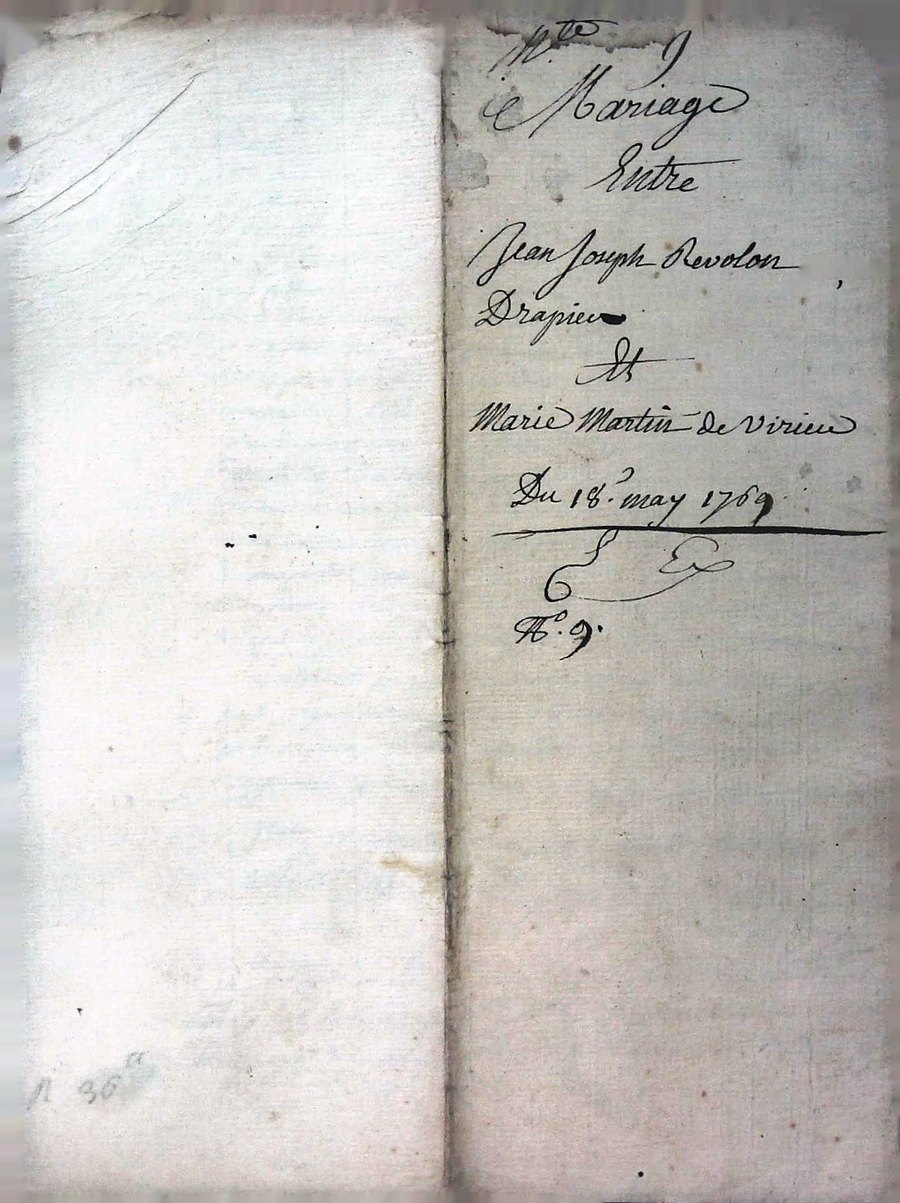 Nte 9
Mariage
Entre
Jean Joseph Revolon
Drapier
Et
Marie Martin de Virieu
Du 18.e may 1769
Ex
No. 9.
36